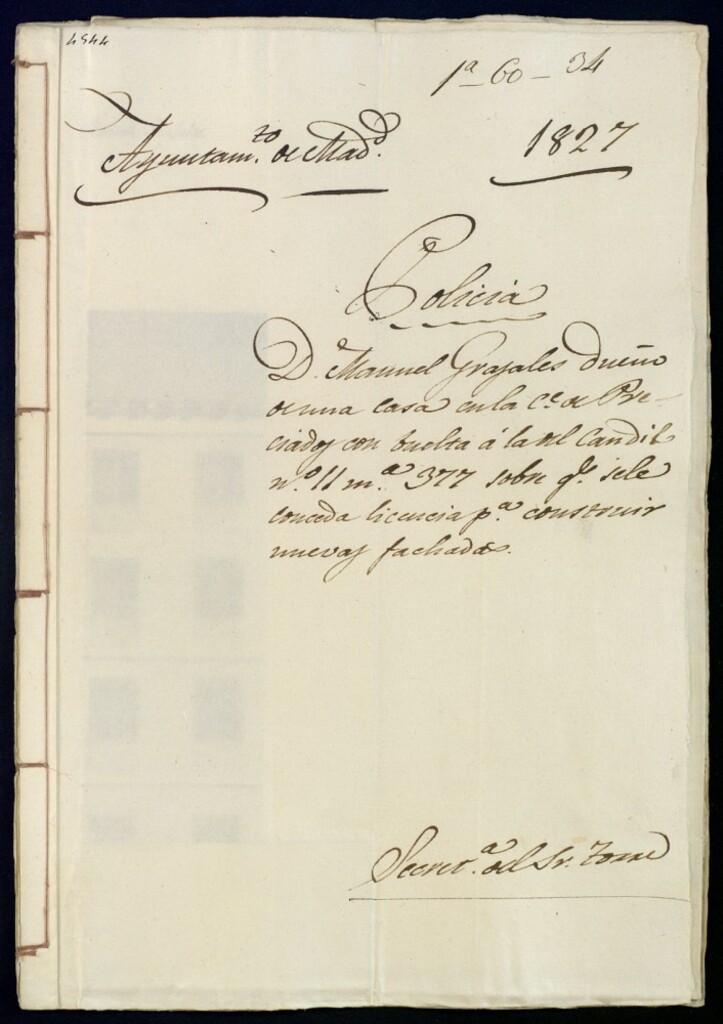 4544
1ª - 60 - 34
Ayuntam.to de Mad.d 1827
Policia
D.n Manuel Grajales dueño
de una casa en la c.e de Pre-
ciados con buelta á la del Candil
n.º 11 m.ª 377 sobre q.e se le
conceda licencia p.ª construir
nuevas fachadas.
Secret.ª del Sr. Torre